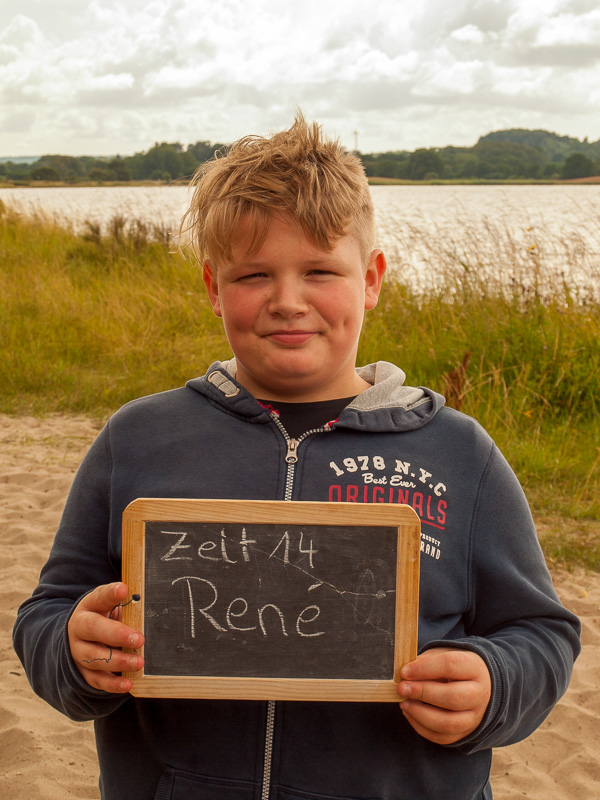 1978 N.Y.C
Best Ever
ORIGINALS
PRODUCT
Zelt 14
René